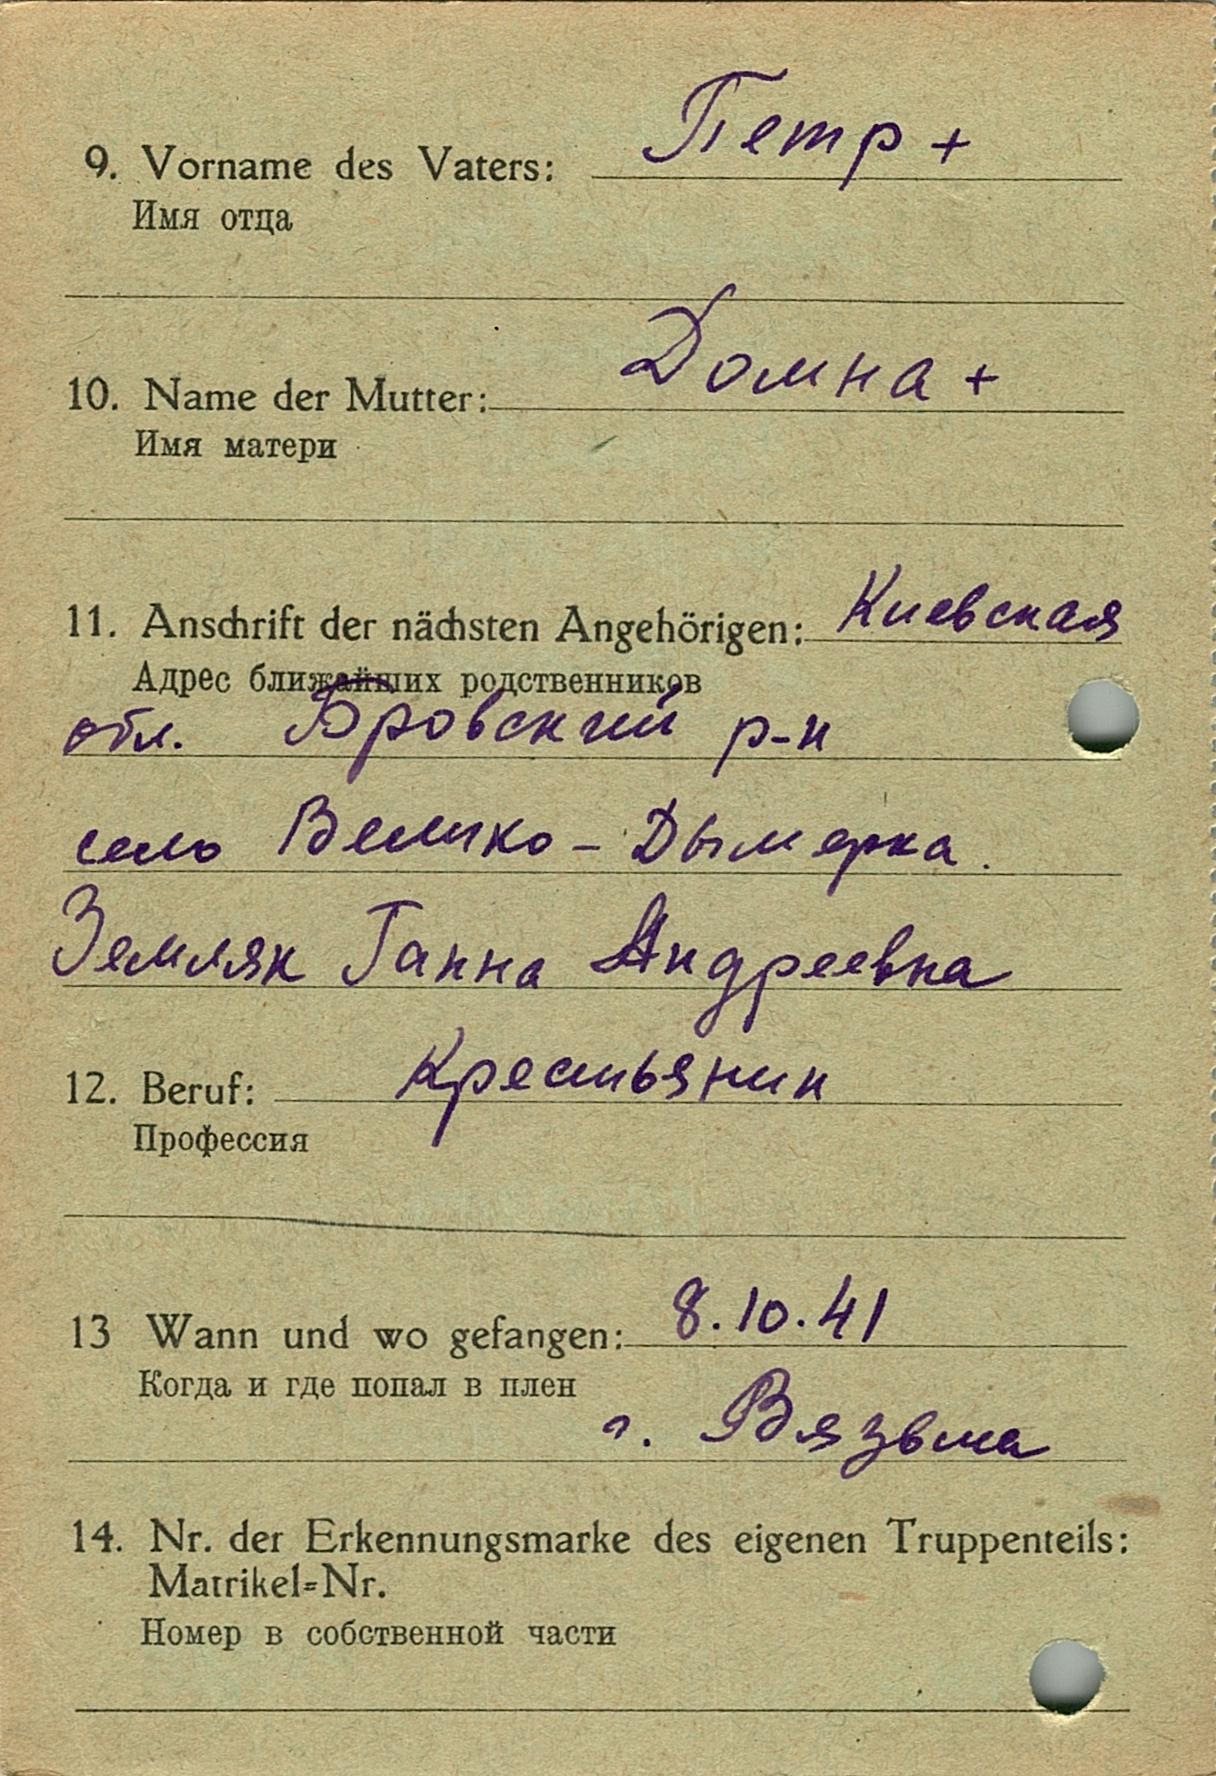 9. Vorname des Vaters: Петр +
Имя отца
10. Name der Mutter: Домна +
Имя матери
11. Anschrift der nächsten Angehörigen: Киевская
Адрес ближайших родственников
обл. Бровский р-н
село Велико - Дымерка.
Земляк Ганна Андреевна
12. Beruf: Крестьянин
Профессия
13 Wann und wo gefangen: 8.10.41
Когда и где попал в плен
г. Вязьма
14. Nr. der Erkennungsmarke des eigenen Truppenteils:
Matrikel=Nr.
Номер в собственной части